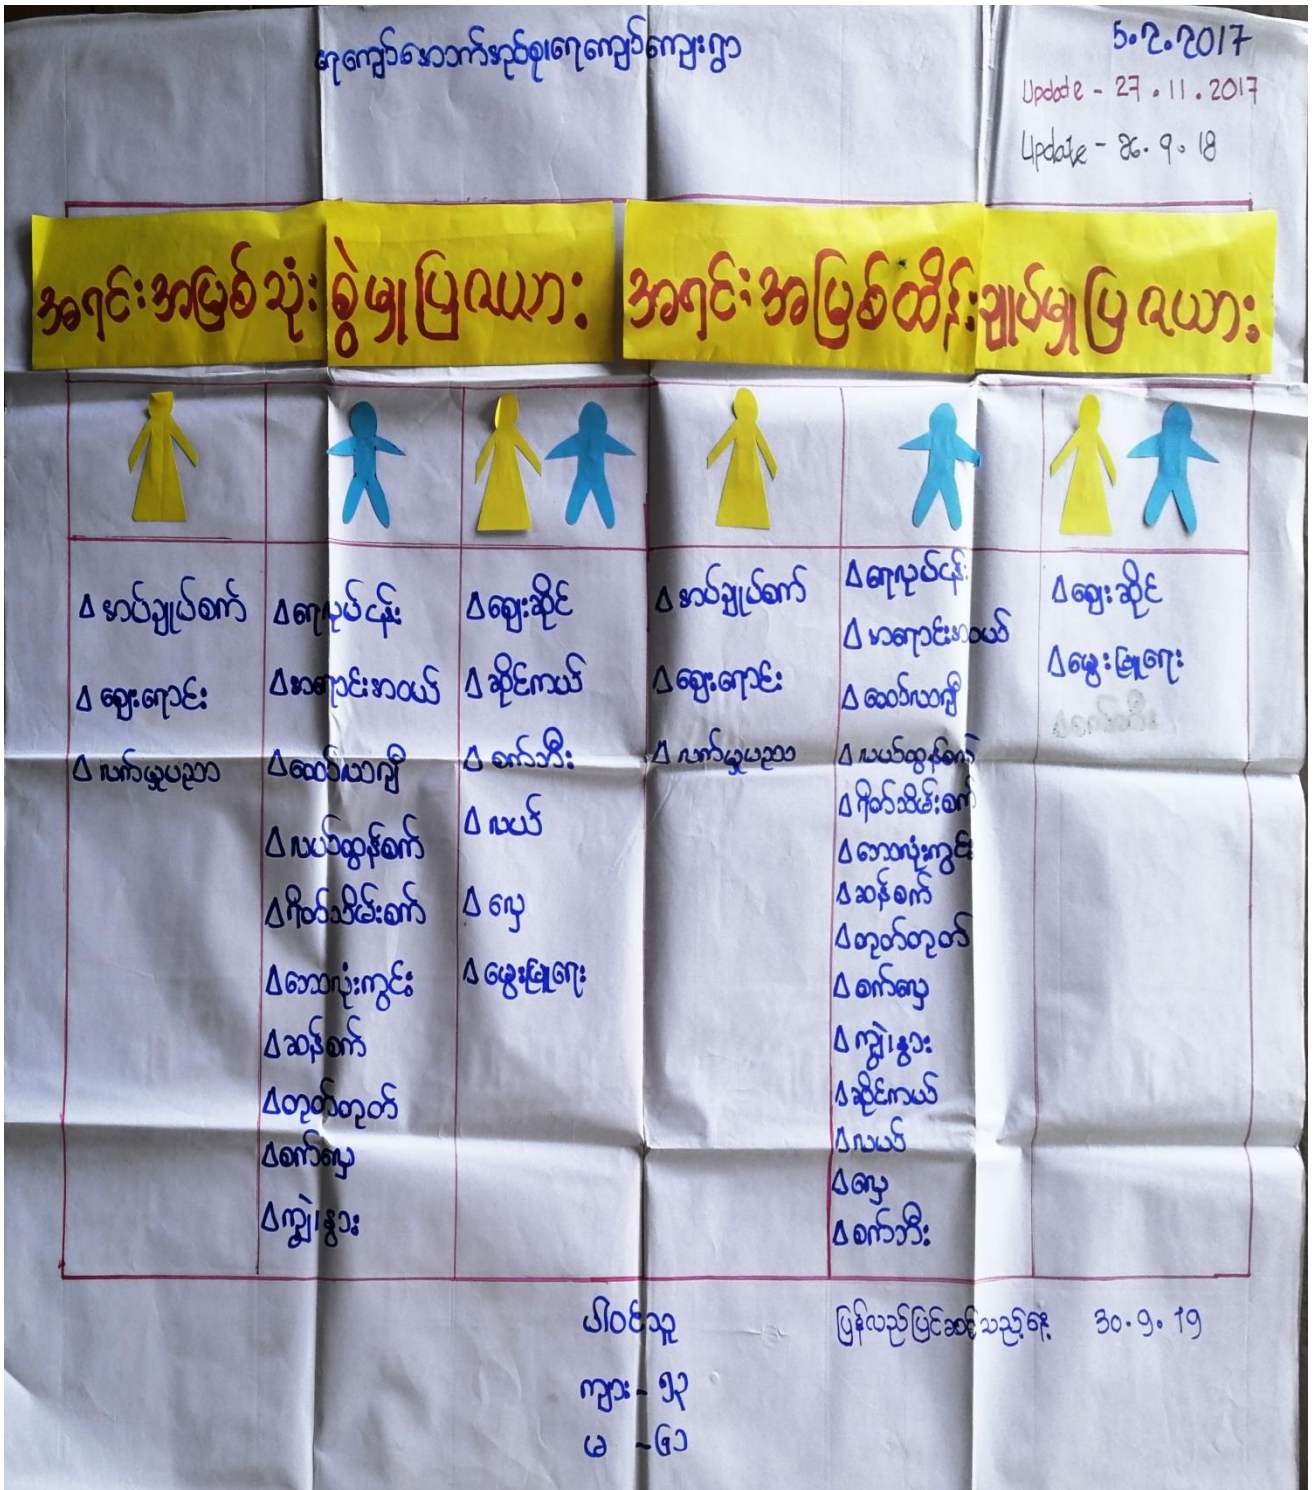 ရေကျော်အောက်အုပ်စု၊ရေကျော်ကျေးရွာ
5.2.2017
Update - 27.11.2017
Update - 26.9.18
အရင်းအမြစ်သုံးစွဲမှုပြဇယား
အရင်းအမြစ်ထိန်းချုပ်မှုပြဇယား
Δ အပ်ချုပ်စက်
Δ ဈေးရောင်း
Δ လက်မှုပညာ
Δ ရေလုပ်ငန်း
Δ အရောင်းအဝယ်
Δ ထော်လာဂျီ
Δ လယ်ထွန်စက်
Δ ရိတ်သိမ်းစက်
Δ ဘောလုံးကွင်း
Δ ဆန်စက်
Δ တုတ်တုတ်
Δ စက်လှေ
Δ ကျွဲ၊နွား
Δ ဈေးဆိုင်
Δ ဆိုင်ကယ်
Δ စက်ဘီး
Δ လယ်
Δ လှေ
Δ မွေးမြူရေး
Δ အပ်ချုပ်စက်
Δ ဈေးရောင်း
Δ လက်မှုပညာ
Δ ရေလုပ်ငန်း
Δ အရောင်းအဝယ်
Δ ထော်လာဂျီ
Δ လယ်ထွန်စက်
Δ ရိတ်သိမ်းစက်
Δ ဘောလုံးကွင်း
Δ ဆန်စက်
Δ တုတ်တုတ်
Δ စက်လှေ
Δ ကျွဲ၊နွား
Δ ဆိုင်ကယ်
Δ လယ်
Δ လှေ
Δ စက်ဘီး
Δ ဈေးဆိုင်
Δ မွေးမြူရေး
ပါဝင်သူ
ကျား - ၅၃
မ - ၆၁
ပြန်လည်ပြင်ဆင်သည့်နေ့ 30.9.19